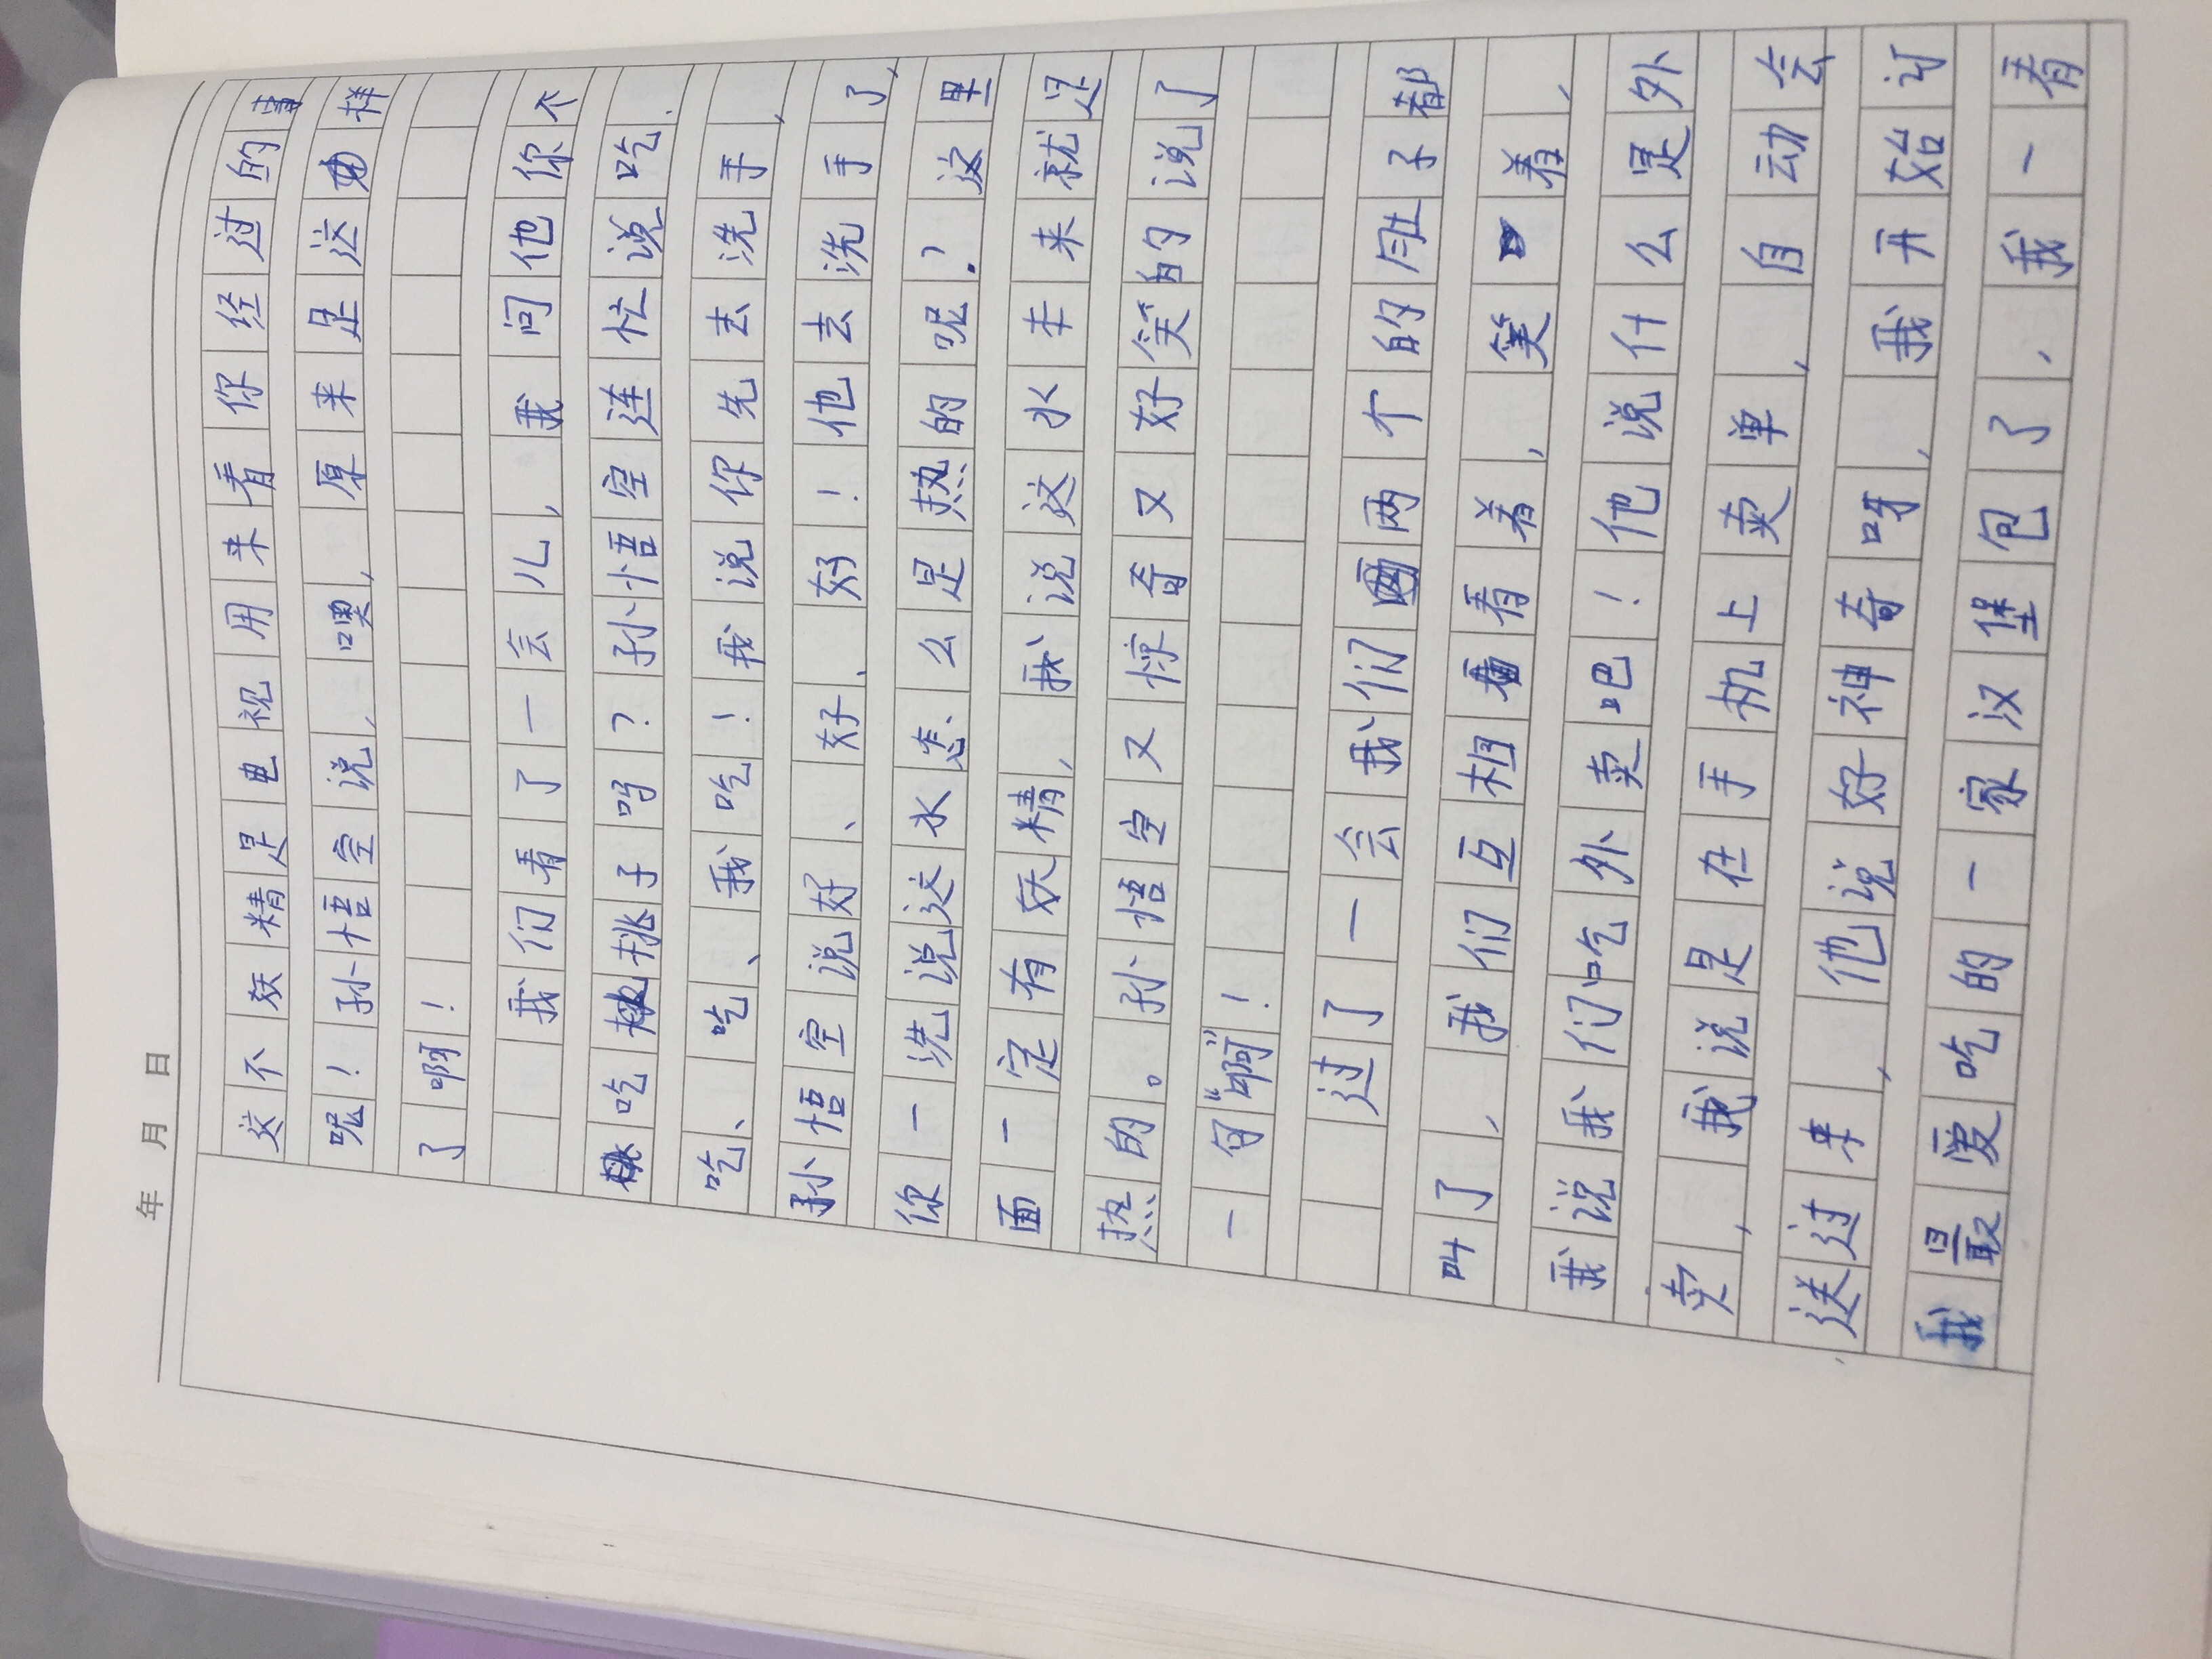 年 月 日
这不妖精是电视用来看你经过的事
呢!孙悟空说,噢,原来是这样
了啊!
我们看了一会儿,我问他你不
吃桃子吗?孙悟空连忙说吃、
吃、吃、我吃!我说你先去洗手,
孙悟空说好、好、好!他去洗手了,
你一洗说这水怎么是热的呢?这里
面一定有妖精,我说这水本来就是
热的。孙悟空又惊奇又好笑的说了
一句“啊”!
过了一会我们两个的肚子都
叫了,我们互相看着,笑着,
我说我们吃外卖吧!他说什么是外
卖,我说是在手机上卖单,自动会
送过来,他说好神奇呀,我开始订
我最爱吃的一家汉堡包了,我一看